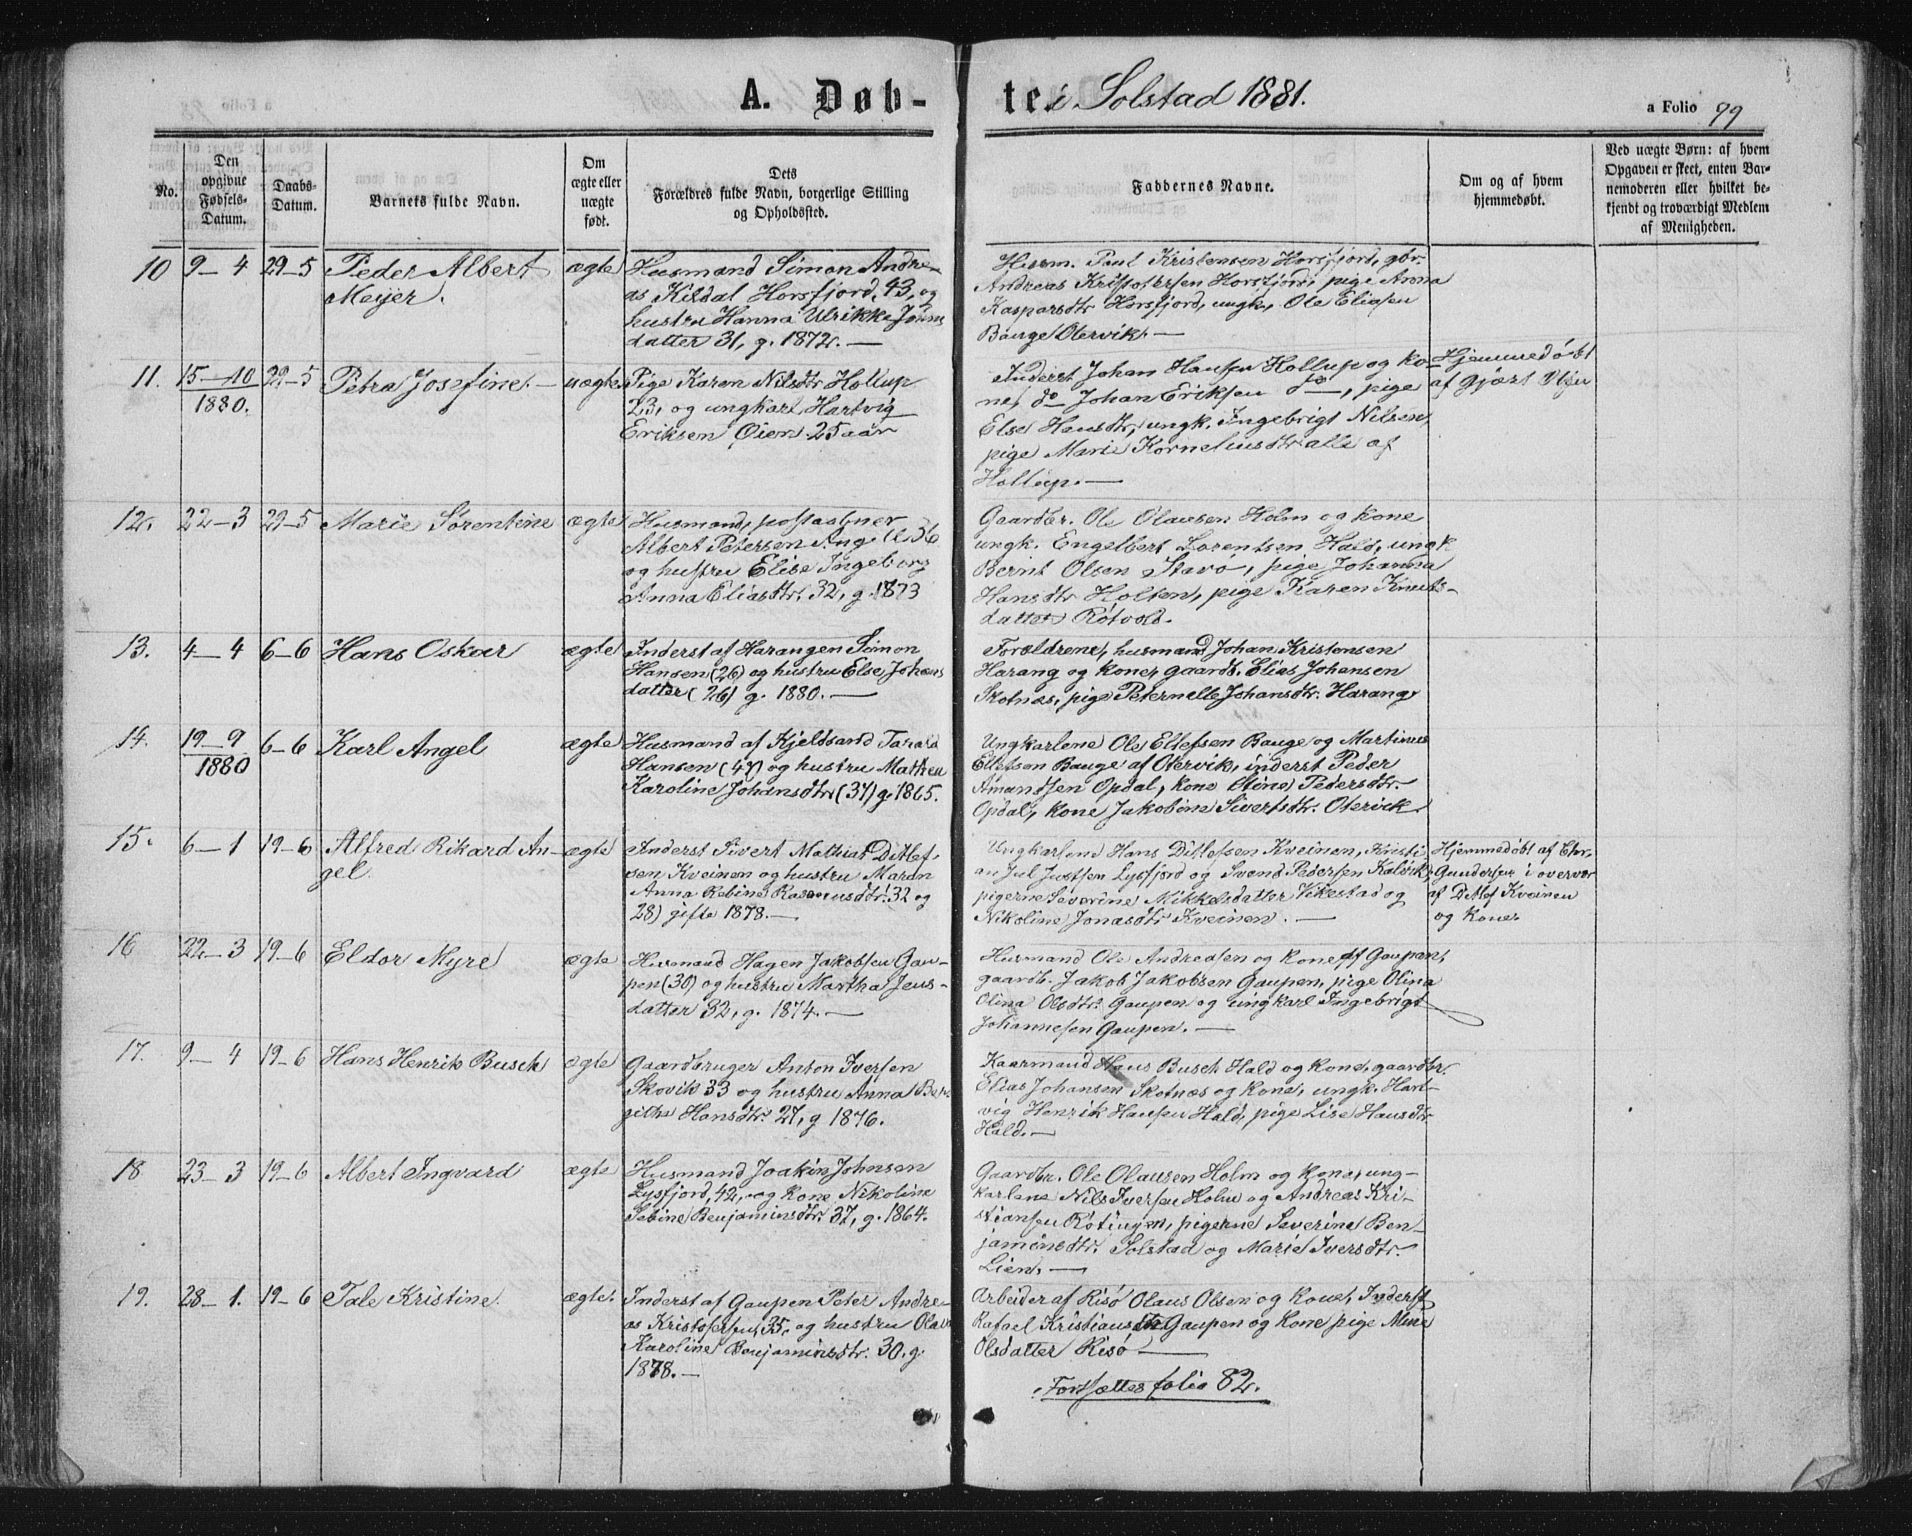 A. Døb-
te i Solstad 1881.
a Folio 79
No.
Den
opgivne
Fødsels-
Datum.
Daabs-
Datum.
Barnets fulde Navn.
Om
ægte eller
uægte
født.
Dets
Forældres fulde Navn, borgerlige Stilling
og Opholdssted.
Faddernes Navne.
Om og af hvem
hjemmedøbt.
Ved uægte Børn: af hvem
Opgaven er skeet, enten Bar-
nemoderen eller hvilket be-
kjendt og troværdigt Medlem
af Menigheden.
10
9-4
29-5
Peder Albert
Meijer.
ægte
Husmand Simon Andre-
as Kildal Horsfjord, 43, og
hustru Hanna Ulrikke Jøns
datter 31, g. 1872. —
Husm. Paul Kristensen Horsfjord, gbr.
Andreas Kristofersen Horsfjord, pige Anna
Kaspersdtr Horsfjord, ungk. Ole Eliasen
Bauge Otervik. —
11.
15-10
1880.
29-5
Petra Josefine. —
uægte
Pige Karen Nilsdtr Hollup
23, og ungkarl Hartvig
Eriksen Øien 25 aar
Inderst Johan Hansen Hollup og ko-
ne, do Johan Eriksen do —, pige
Else Hansdtr, ungk. Ingebrigt Nilsen,
pige Marie Kornelinsdtr alle af
Hollup. —
Hjemmedøbt
af Gjært
12.
22-3
29-5
Marie Sørentine
ægte
Husmand, postaabner
Albert Petersen Angel, 36
og hustru Elise Ingeborg
Anna Eliasdtr. 32, g. 1873
Gaardbr. Ole Olausen Holm og kone
ungk. Engelbert Lorentsen Hald, ungk
Bernt Olsen Stavø, pige Johanna
Hansdtr Holten, pige Karen Knuts-
datter Røtvold.
13.
4-4
6-6
Hans Oskar
ægte
Inderst af Harangen Simon
Hansen (26) og hustru Else Johans
datter (26) g. 1880. —
Forældrene, husmand Johan Kristensen
Harang og kone, gaardb. Elias Johansen
Skotnæs, pige Peternelle Johansdtr. Harang
14.
19-9
1880
6-6
Karl Angel
ægte
Husmand af Kjeldsand Tarald
Hansen (47) og hustru Mathea
Karoline Johansdtr (37) g. 1865.
Ungkarlene Ole Ellefsen Bauge og Martinus
Ellefsen Bauge af Otervik, inderst Peder
Amandsen Opdal, kone Stine Pedersdtr.
Opdal, kone Jakobine Sivertsdtr. Otervik.
15.
6-1
19-6
Alfred Rikard An-
gel
ægte
Inderst Sivert Mathias Ditlef-
sen Kveinen og hustru Maren
Anna Rebine Rasmusdtr. 32 og
28) gifte 1878. —
Ungkarlene Hans Ditlefsen Kveinen, Kristi-
an Jul Justsen Lysfjord og Svend Pedersen Kalvik,
pigerne Severine Mikkelsdatter Vikestad og
Nikoline Jonasdtr Kveinen. —
Hjemmedøbt af
Gundersen i overvær
af Ditlef Kveinen
og kone
16
22-3
19-6
Eldor Myre
ægte
Husmand Hagen Jakobsen Gau-
pen (30) og hustru Martha Jens-
datter 32, g. 1874. —
Husmand Ole Andresen og kone af Gaupen,
gaardb. Jakob Jakobsen Gaupen, pige Olina
Olina Olsdtr. Gaupen og ungkarl Ingebrigt
Johannesen Gaupen. —
17.
9-4
19-6
Hans Henrik Busch
ægte
Gaardbruger Anton Iversen
Skovik 33 og hustru Anna Ber-
githe Hansdtr. 27, g 1876.
Kaarmand Hans Busch Hald og kone, gaardbr.
Elias Johansen Skotnæs og kone, ungk. Hart-
vig Henrik Hansen Hald, pige Lise Hansdtr
Hald. —
18
23-3
19-6
Albert Ingvard
ægte
Husmand Joakin Johnsen
Lysfjord, 42, og kone Nikoline
Sebine Benjaminsdtr. 37, g. 1864.
Gaardbr. Ole Olausen Holm og kone, ung-
karlene Nils Iversen Holm og Andreas Kri-
stiansen Røtingen, pigerne Severine Ben-
jaminsdtr. Solstad og Marie Iversdtr.
Lien. —
19.
28-1.
19-6
Tale Kristine
ægte.
Inderst af Gaupen Peter Andre-
as Kristofersen, 35, og hustru Olava
Karoline Benjaminsdtr. 30. g.
1878. —
Arbeider af Risø Olaus Olsen og kone, Inderst
Rafael Kristiansen Gaupen og kone pige Mine
Olsdatter Risø —
Fortsættes folio 82.